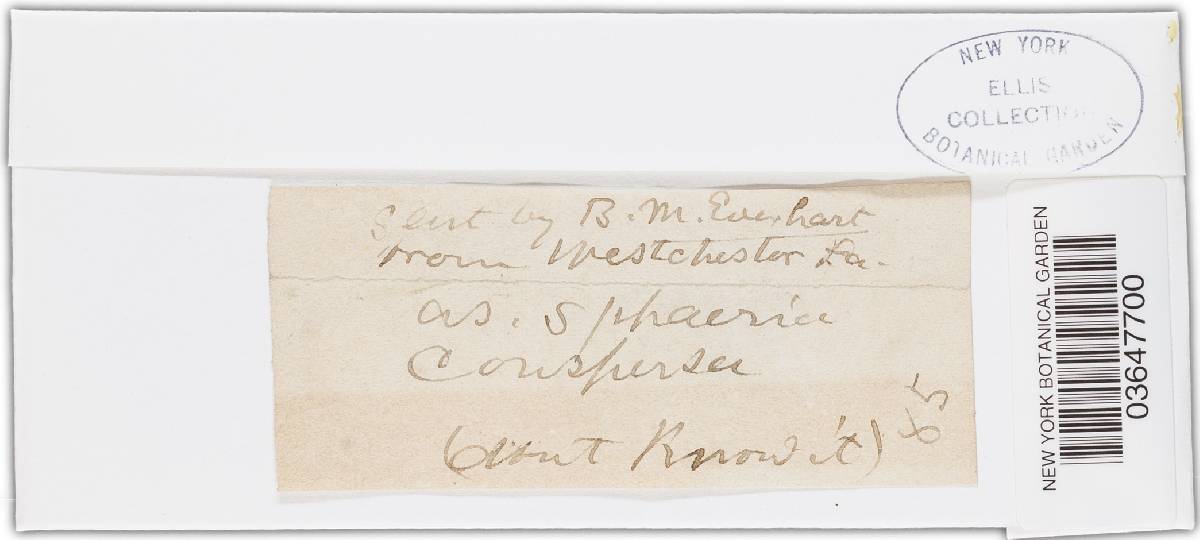 NEW YORK
ELLIS
COLLECTION
BOTANICAL GARDEN
Sent by B. M. Everhart
from Westchester Pa.
as. Sphaeria
Conspersa
(dont Know it)
NEW YORK BOTANICAL GARDEN
03647700